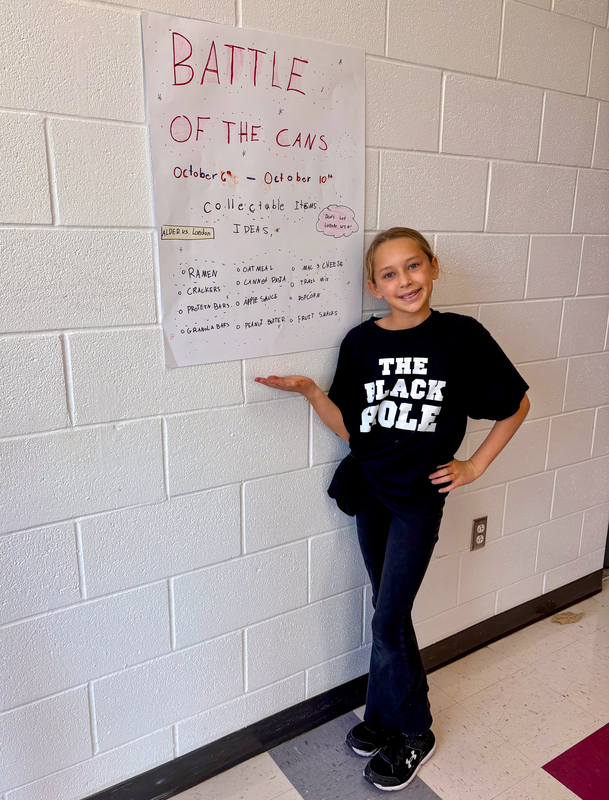 BATTLE
OF THE CANS
October 6th – October 10th
Collectable Items
ALDER vs. London
IDEAS
Don't Let
London WIN!
o RAMEN
o CRACKERS
o PROTEIN BARS
o GRANOLA BARS
o OATMEAL
o CANNED PASTA
o APPLE SAUCE
o PEANUT BUTTER
o MAC & CHEESE
o TRAIL MIX
o POPCORN
o FRUIT SNACKS
THE
BLACK
HOLE